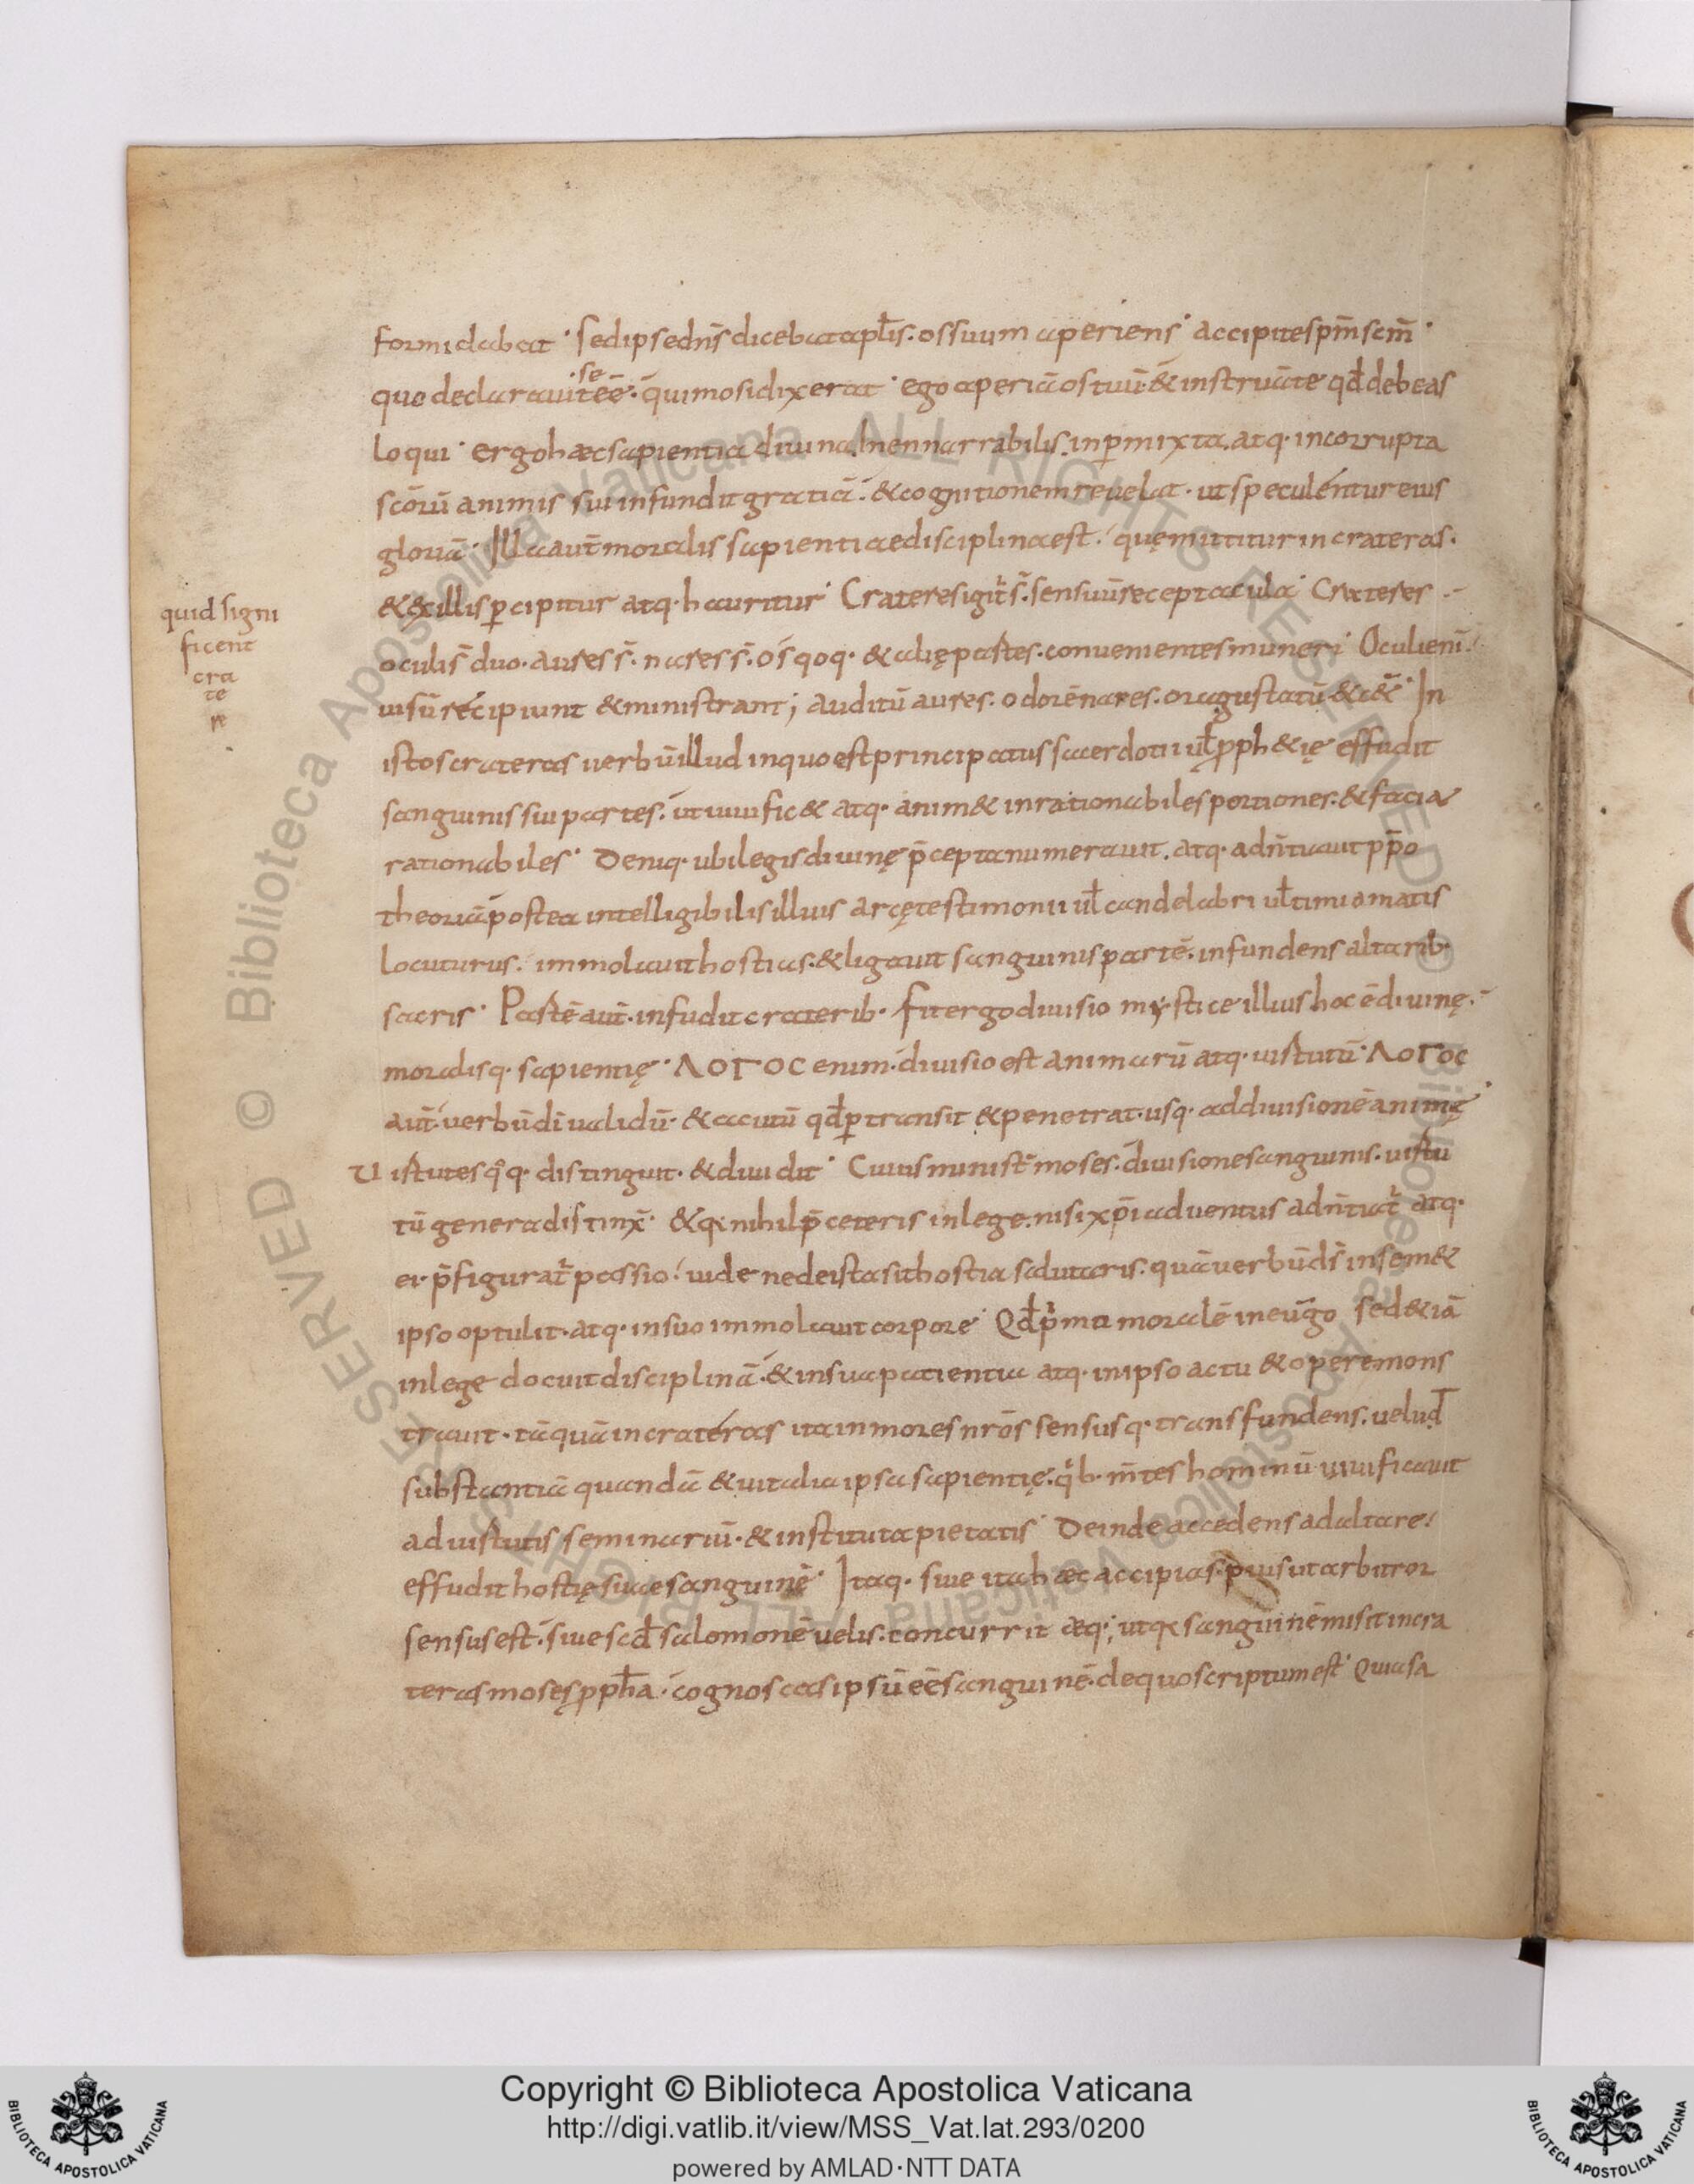 formidabat · sed ipse dn̄s dicebat aptłis · os suum aperiens · accipite sp̄m scm̄ ·
quo declarauit se eē · qui mosi dixerat · ego aperiā os tuū · & instruā te qd̄ debeas
loqui · ergo haec sapientia diuina Inennarrabilis . inp̱mixta . atq · incorrupta
scōrū animis sui infundit gratiā · & cognitionem reuelat · ut speculentur eius
gloriā · Illa aut̄ moralis sapientiae disciplina est · quę mittitur in crateras ·
& ex illis p̱cipitur atq · hauritur · Crateres igit̄ s̄ · sensuū receptacula · Crateres
oculi s̄ duo · aures s̄ · nares s̄ · os qoq · & alię partes · conuenientes muneri · Oculi eni̅
uisū recipiunt & ministrant ; auditū aures · odorē nares · ora gustatū & c&̄ · In
istos crateras uerbū illud in quo est principatus sacerdotii ut̄ pph&ię effudit
sanguinis sui partes · ut uiuific& atq · anim& inrationabiles portiones · & facia
rationabiles · Deniq · ubi legis diuinę p̄cepta numerauit . atq · adn̄tiauit pp̄o
theoriā postea intelligibilis illius arcę testimonii ut̄ candelabri ut̄ timiamatis
locuturus · immolauit hostias · & ligauit sanguinis partē · infundens altarib ·
sacris · Partē aut̄ · infudit craterib · Fit ergo diuisio mystice illius hoc ē diuinę ·
moralisq · sapientię · ΛΟΓΟC enim · diuisio est animarū atq · uirtutū · ΛΟΓΟC
aut̄ uerbū dī ualidū · & acutū qd̄ p̱transit & penetrat · usq · ad diuisionē animę
Uirtutes qoq · distinguit · & diuidit · Cuius minist̄ moses · diuisione sanguinis · uirtu
tū genera distinx̄ · & q nihil p̄ceteris in lege · nisi xp̄i aduentus adn̄tiat̄ atq ·
ei · p̄figurat̄ passio · uide ne de ista sit hostia salutaris · quā uerbū dī insem&
ipso optulit · atq · in suo immolauit corpore · Qd̄ p̱ma moralē in eūgo sed & iā
in lege docuit disciplinā · & in sua patientia atq · in ipso actu & opere mons
trauit · tāquā in crateras ita in mores nr̄os sensusq · transfundens · uelud
substantiā quandā & uitalia ipsa sapientię · qb · m̄tes hominū uiuificauit
ad uirtutis seminariū · & instituta pietatis · Deinde accedens ad altare ·
effudit hostię suae sanguinē · Itaq · siue ita haec accipias · pius ut arbitror
sensus est · siue scd̄ salomonē uelis · concurrit aeq ; utq sanguinē misit in cra
teras moses pph̄a · cognoscas ipsū eē sanguinē · de quo scriptum est · Quia sa
quid signi
ficent
cra
te
re
Copyright © Biblioteca Apostolica Vaticana
http://digi.vatlib.it/view/MSS_Vat.lat.293/0200
powered by AMLAD·NTT DATA
BIBLIOTECA APOSTOLICA VATICANA
BIBLIOTECA APOSTOLICA VATICANA
© Biblioteca Apostolica Vaticana ALL RIGHTS RESERVED © Biblioteca Apostolica Vaticana ALL RIGHTS RESERVED